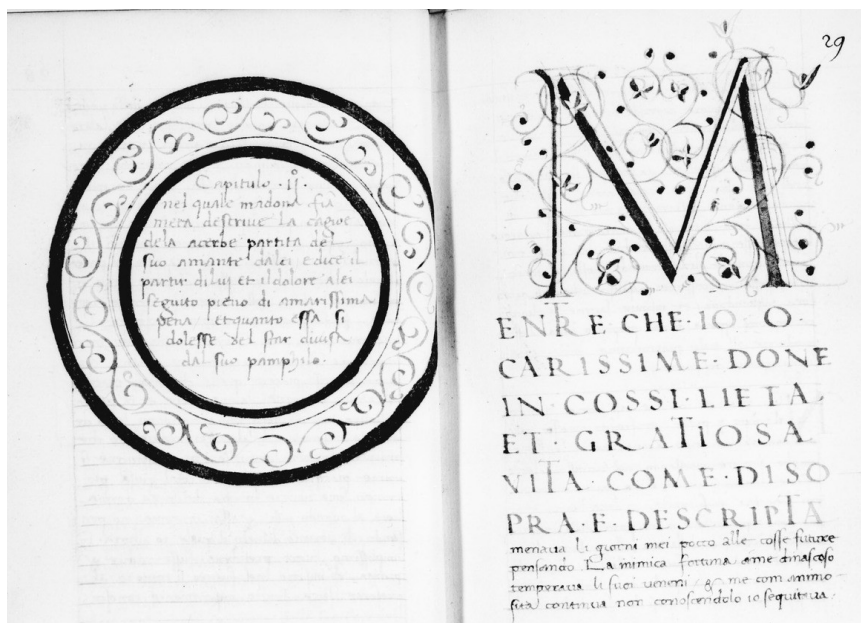 Capitulo · II ·
nel quale madona fia
meta descriue la cagioe
dela acerbe partita del
suo amante dalei e dice il
partir di lui et il dolore alei
seguito pieno di amarissima
pena et quanto essa si
dolesse del star diuisa
dal suo pamphilo ·
29
M
ENTRE CHE · IO · O
CARISSIME · DONE
IN · COSSI · LIETA
ET · GRATIOSA
VITA · COME · DISO
PRA · E · DESCRIPTA
menaua li giorni mei pocco alle cosse future
pensando La inimica fortuna ame dinascoso
temperaua li suoi ueneni & me com animo
sità continua non conoscendolo io sequitaua ·